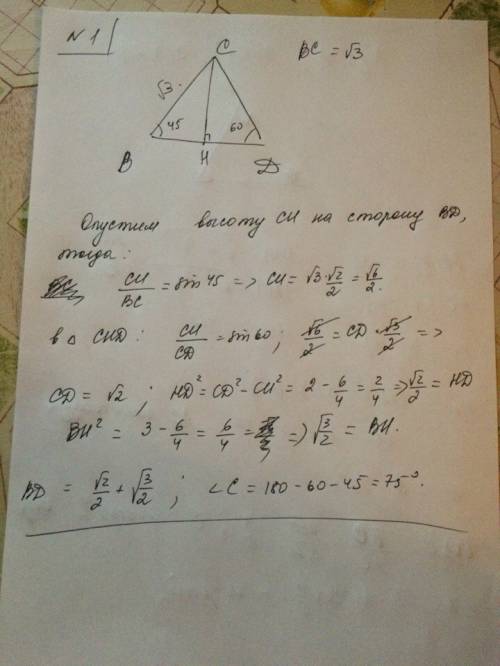 N 1
C
BC = √3
√3
45
60
B
H
D
Опустим высоту CH на сторону BD,
тогда:
CH/BC = sin 45 => CH = √3·√2/2 = √6/2.
в △ CHD: CH/CD = sin 60; √6/2 = CD·√3/2 =>
CD = √2; HD² = CD² - CH² = 2 - 6/4 = 2/4 => √2/2 = HD
BH² = 3 - 6/4 = 6/4 = => √3/2 = BH.
BD = √2/2 + √3/2; ∠C = 180 - 60 - 45 = 75°.